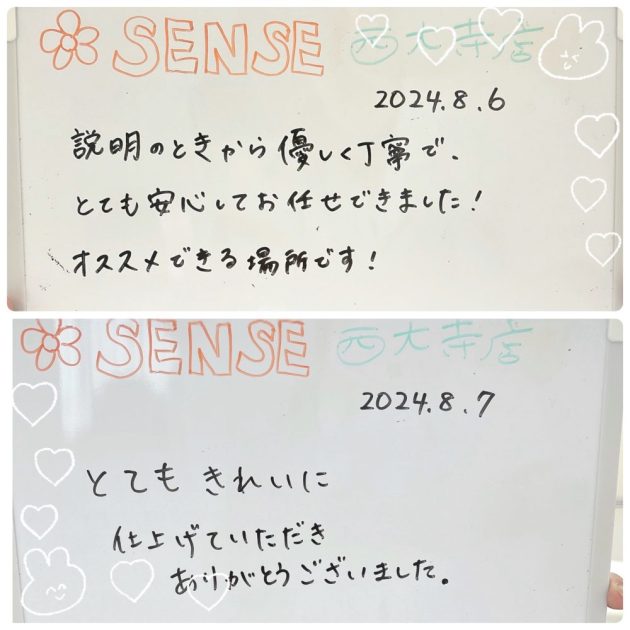 SENSE 西大寺店
2024.8.6
説明のときから優しく丁寧で、
とても安心してお任せできました！
オススメできる場所です！
SENSE 西大寺店
2024.8.7
とても きれいに
仕上げていただき
ありがとうございました。